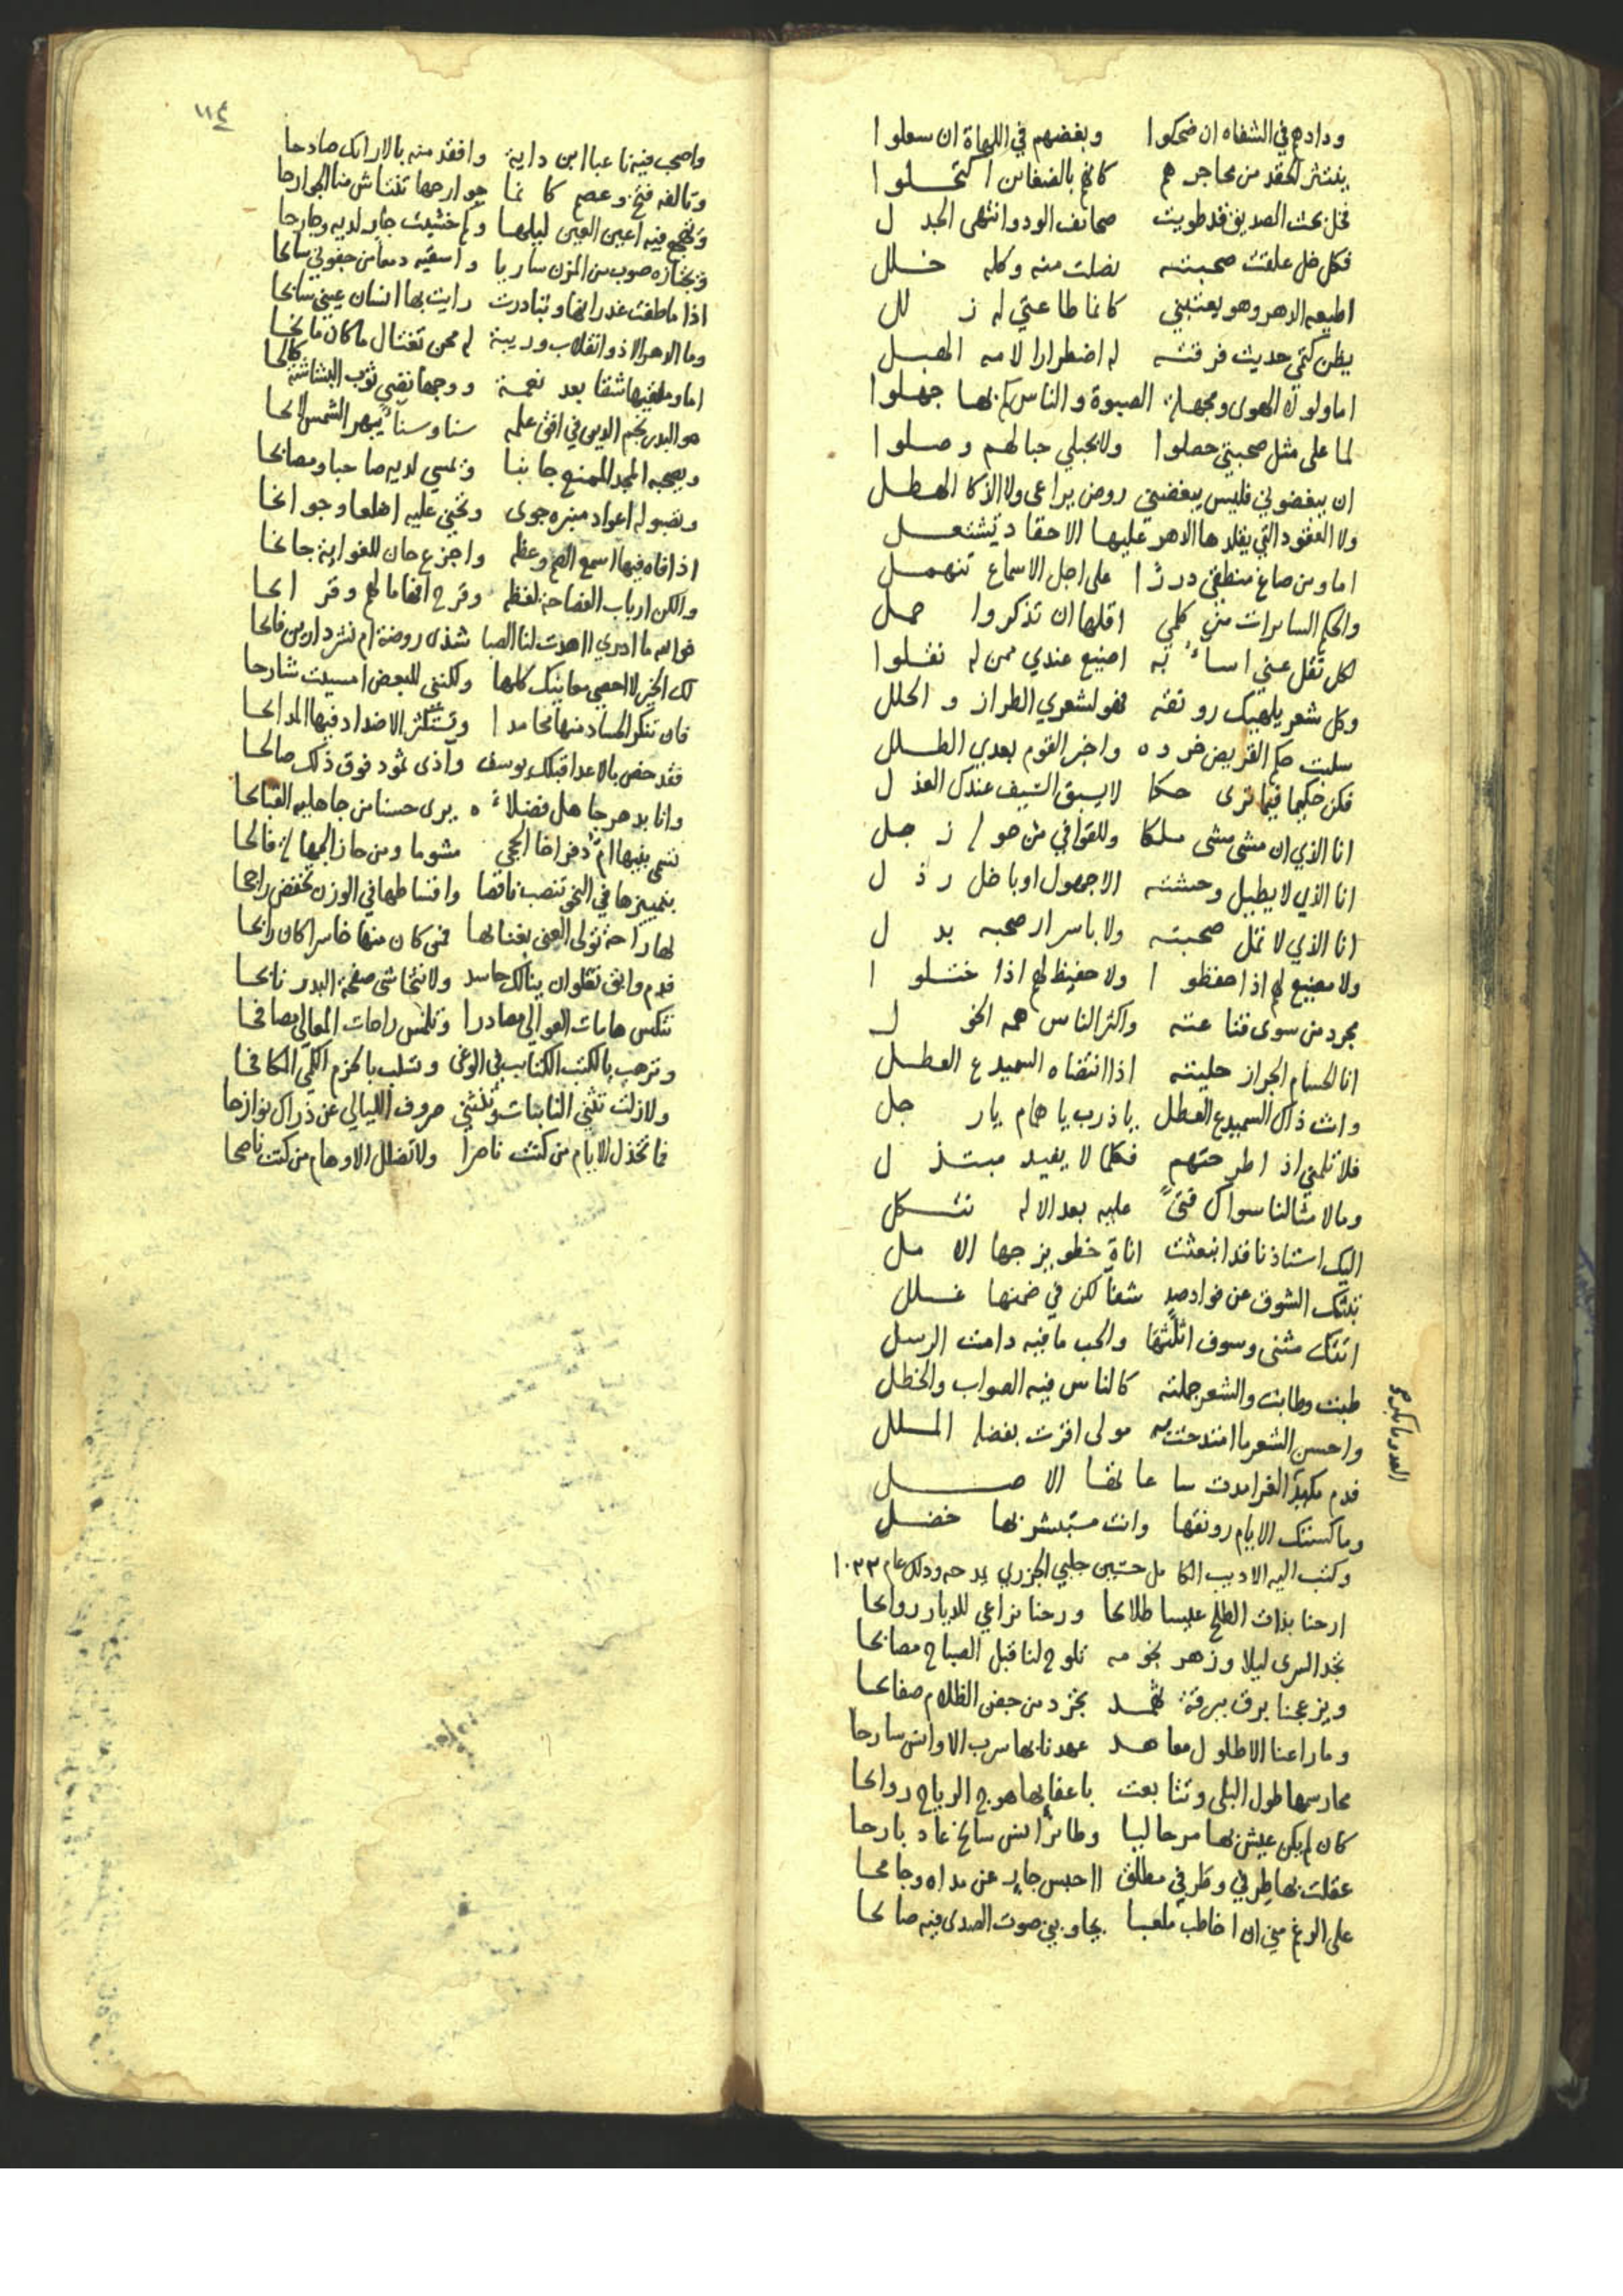 ودادهم في الشفاه ان ضحكوا وبغضهم في اللهاة ان سعلوا
ينتثر الحقد من محاجرهم كانهم بالضغائن اكتحلوا
فخل بحث الصديق قد طويت صحائف الود وانتهى الجدل
فكل خل علقت صحبته نضلت منه وكله خلل
اطيعه الدهر وهو يعتبني كانما طاعتي له زلل
يظن كتمي حديث فرقته له اضطرارا لامه الهبل
اما ولو لا الهوى ومجهلة الصبوة والناس كم بها جهلوا
لما على مثل صحبتي حصلوا ولا بحبلي حبالهم وصلوا
ان يبغضوني فليس يبغضني روض يراعى ولا الذكا الهطل
ولا العقود التي يقلدها الدهر عليها الاحقاد تشتعل
اما ومن صاغ منطقي دررا على اجل الاسماع تنهمل
والحكم السائرات من كلمي اقلها ان تذكروا جمل
لكل ثقل عني اساء به اصنع عندي ممن له نقلوا
وكل شعر يلهيك رونقه فهو لشعري الطراز والحلل
سلبت حكم القريض خرده واخر القوم بعدي الطلل
فكن حكيما فيما ترى حكما لا يسبق السيف عندك العذل
انا الذي ان مشى مشى ملكا وللقوافي من حوله زجل
انا الذي لا يطيل وحشته الا جهول او باخل رذل
انا الذي لا تمل صحبته ولا باسرار صحبه بدل
ولا مضيع لهم اذا حفظوا ولا حفيظ لهم اذا ختلوا
مجرد من سوى قناعته واكثر الناس همه الخول
انا الحسام الجراز حليته اذا انتضاه السميدع العطل
وانت ذاك السميدع العطل ياذرب يا همام يارجل
فلا تلمني اذا اطرحتهم فكلما لا يفيد مبتذل
وما لامثالنا سواك فتى عليه بعد الاله نتكل
اليك استاذنا قد انبعثت اناة خطو يزجها الامل
تبثك الشوق عن فواد صد شفا لكن في ضمنها غلل
اتتك مثنى وسوف اثلثها والحب ما فيه دامت الرسل
طبت وطابت والشعر جملته كالناس فيه الصواب والخطل
واحسن الشعر ما امتدحت به مولى اقرت بفضله الملل
فدم مكيد الغر امدت ساعاتها الاصل
وما كستك الايام رونقها وانت مستبشر بها خضل
وكتب اليه الاديب الكامل حسين جلبي الجزري يمدحه وذلك عام ١٠٣٣
ارحنا بذات الطلح عيسا طلائحا ورحنا نراعي للديار روائحا
نجد السرى ليلا وزهر نجومه تلوح لنا قبل الصباح مصابحا
ويزعجنا برق ببرقة ثهمد يجرد من جفن الظلام صفائحا
وما راعنا الا طلول معاهد عهدنا بها سرب الاوانس سارحا
محا رسمها طول البلى وتتابعت باعقابها هوج الرياح روائحا
كان لم يكن عيش بها مر حاليا وطائر انس سانح عاد بارحا
عقلت بها طرفي وطرفي مطلق احبس جار عن مداه وجامحا
على الرغم مني ان اخاطب ملعبا يجاوبني صوت الصدى فيه صائحا
١١٤
واصحب فيه ناعبا ابن داية وافقد منه بالاراك صادحا
وتالفه فتخ وعصم كانما جوارحها تنتاش منا الجوارحا
وتهجع فيه اعين العين ليلها وكم خشيت جار لديه وجارحا
وتجتازه صوب من المزن ساريا واسقيه دمعا من جفوني سائحا
اذا ما طفت غدرانها وتبادرت رايت بها انسان عيني سابحا
وما الدهر الا ذو انقلاب وريبة لم محن تغتال ما كان مانحا
اما وملقيها شقا بعد نعمة ووجها نقي ثوب البشاشة كالحا
هو البدر نجم الدين في افق علمه سنا وسناء يبهر الشمس لائحا
ويصحبه المجد الممنع جانبا ويمسي لديه صاحبا ومصابحا
وتصبو له اعواد منبره جوى وتحني عليه اضلعا وجوانحا
اذا فاه فيها اسمع الصم وعظه واجزع من حان للغواية جانحا
والكن ارباب الفصاحة لفظه وقرح افهاما لهم وقرائحا
فوالله ما ادري اهدت لنا الصبا شذى روضة ام نشر دارين فائحا
لك الخير لا احصي معانيك كلها ولكنني للبعض امسيت شارحا
فان تنكر الحساد منها محامدا وتستكثر الاضداد فيها المدائحا
فقد خص بالاعدا قبلك يوسف واذى ثمود فوق ذلك صالحا
وانا بدهر جاهل فضلاءه يرى حسنا من جاهليه القبائحا
بتمييزها في النحو تنصب ناقصا واقساطها في الوزن تخفض راجحا
لها راحة تولي الغنى بغنا لها فمن كان منها خاسرا كان رابحا
فدم وابق تعلو ان ينالك حاسد ولا تتحاشى صفحة البدر نابحا
تنكس هامات العوالي مصادرا وتلمس راحات المعالي مصافحا
وترهب بالكتب الكتائب في الوغى وتسلب بالحزم الكمي المكافحا
ولا زلت تثني النائبات وتنثني صروف الليالي عن ذراك نوازحا
فما تخذل الايام من كنت ناصرا ولا تضلل الاوهام من كنت ناصحا